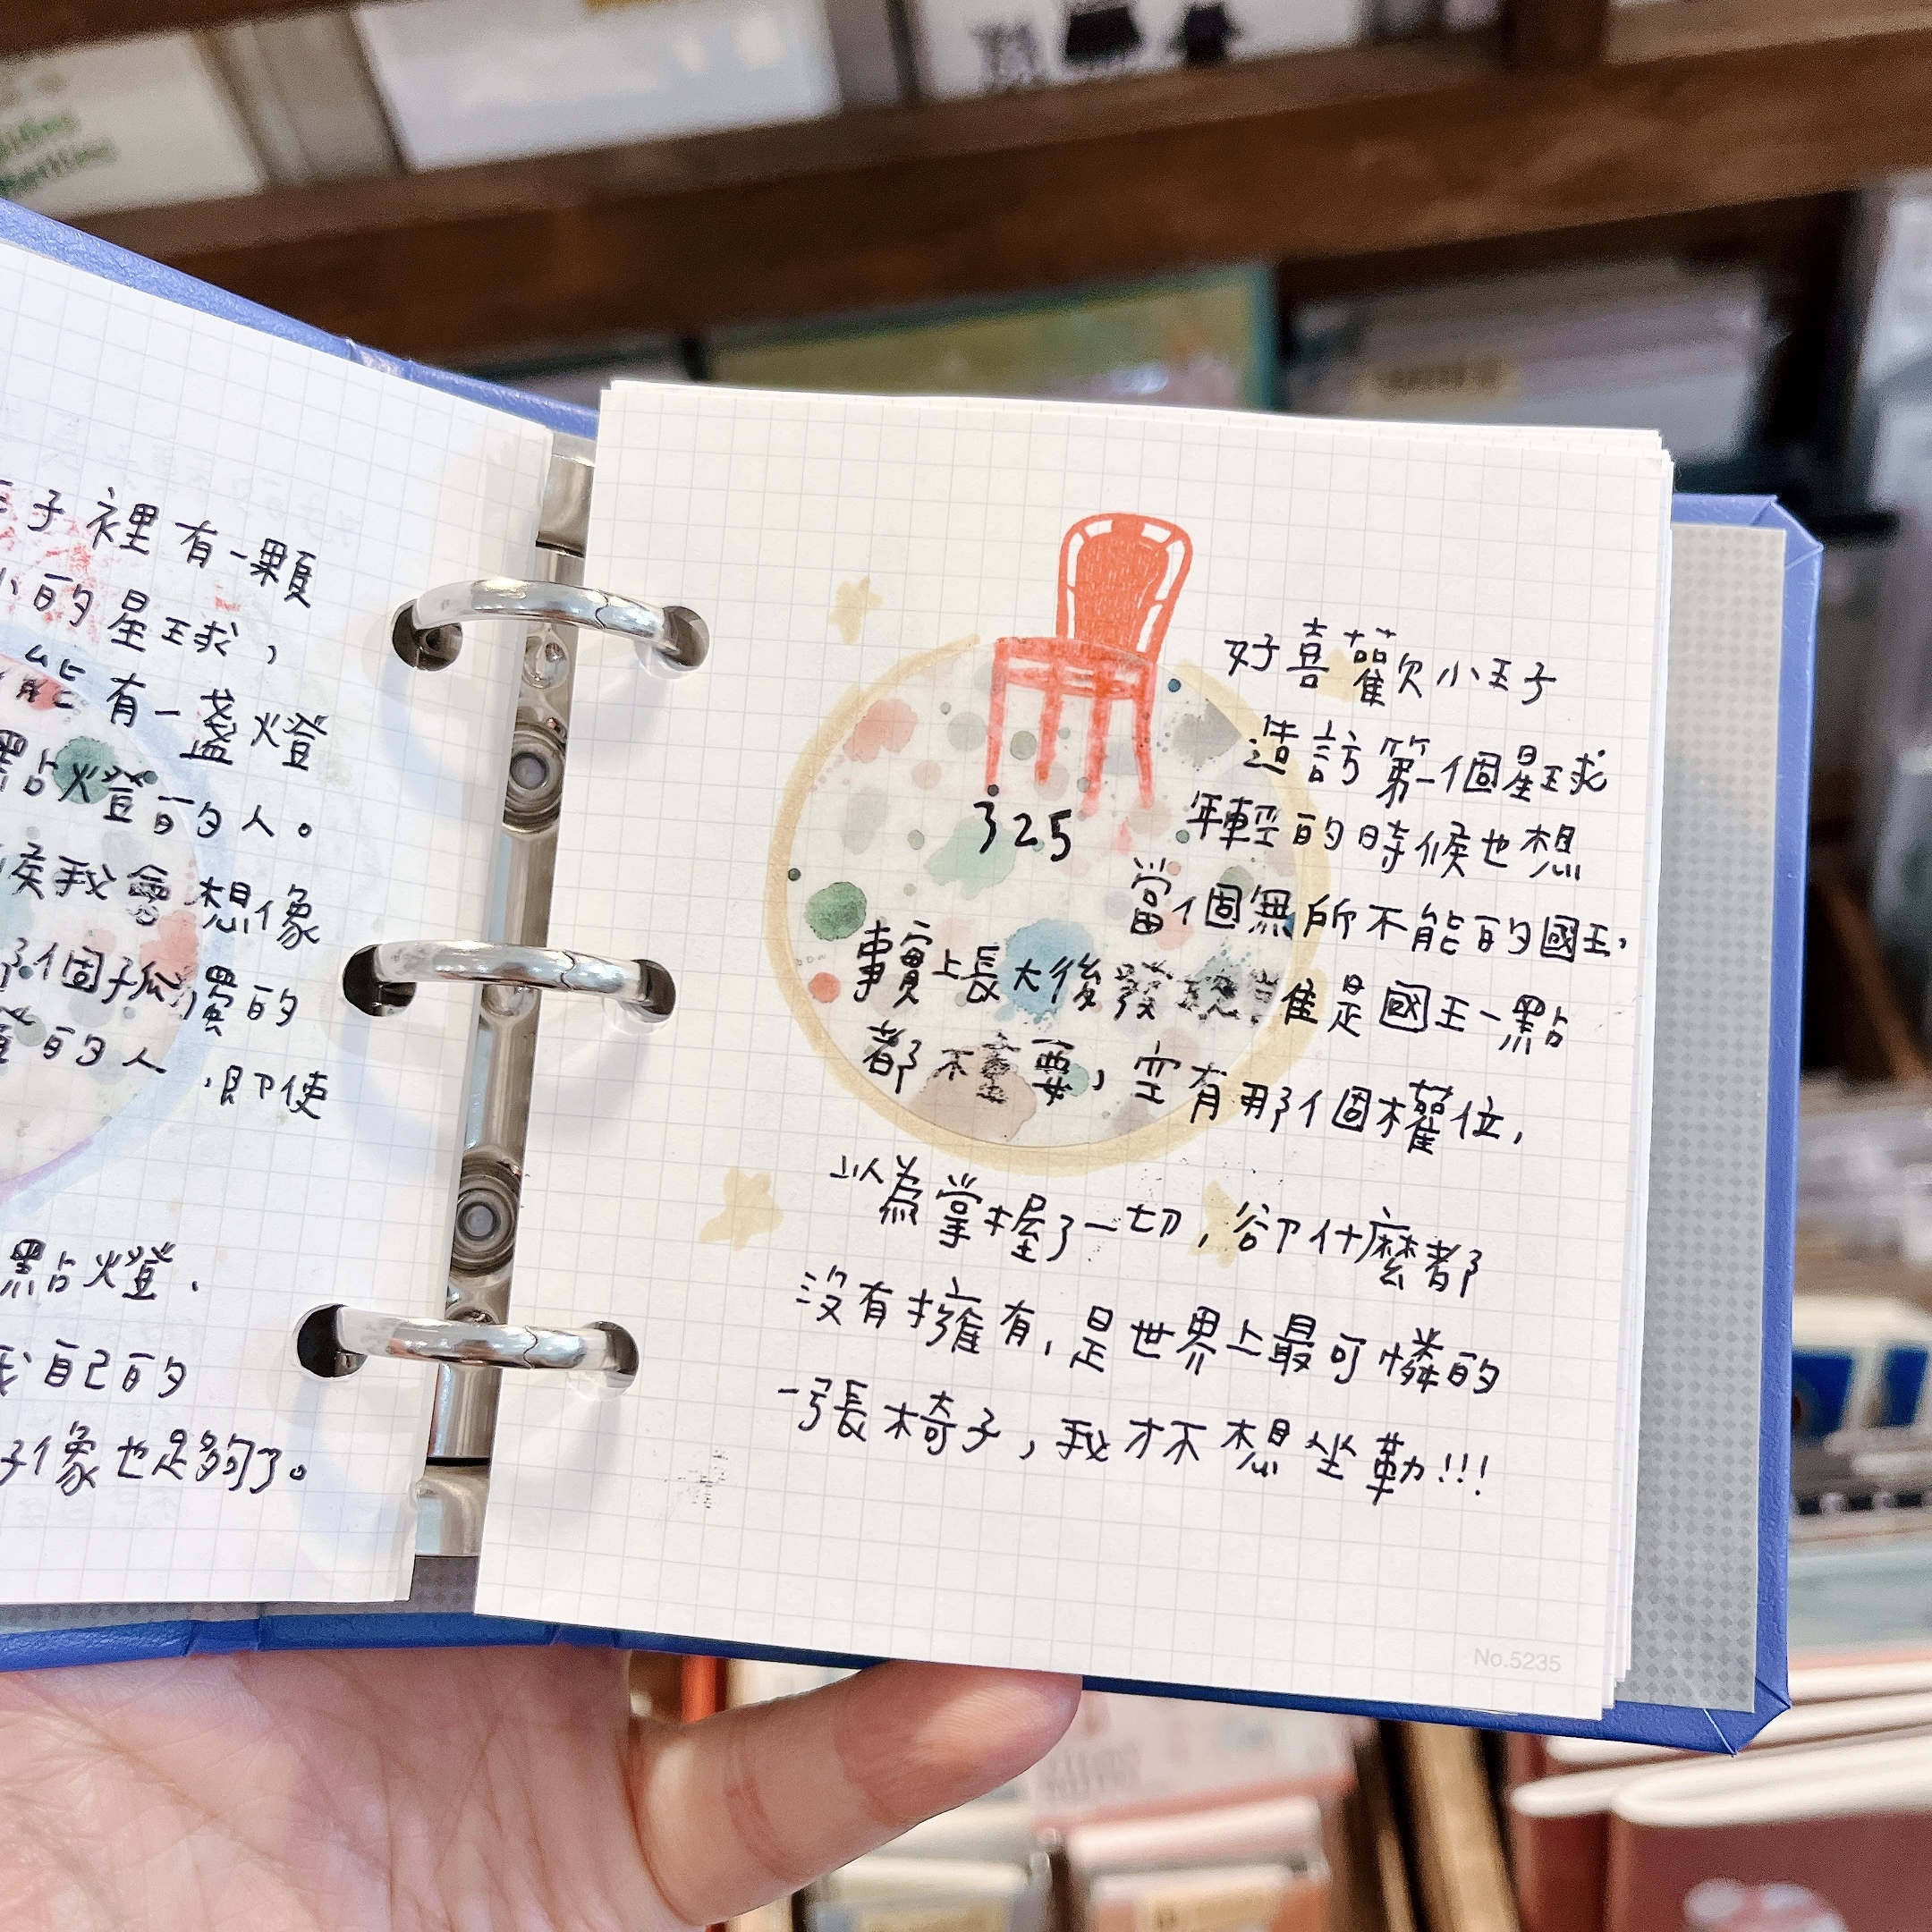 子裡有一顆
小的星球，
能有一盞燈
點燈的人。
候我會想像
那個孤獨的
的人，即使
點燈，
我自己的
子像也足夠了。
325
好喜歡小王子
造訪第一個星球
年輕的時候也想
當個無所不能的國王，
事實上長大後發現誰是國王一點
都不重要，空有那個權位，
以為掌握了一切，卻什麼都
沒有擁有，是世界上最可憐的
一張椅子，我才不想坐勒!!!
No.5235